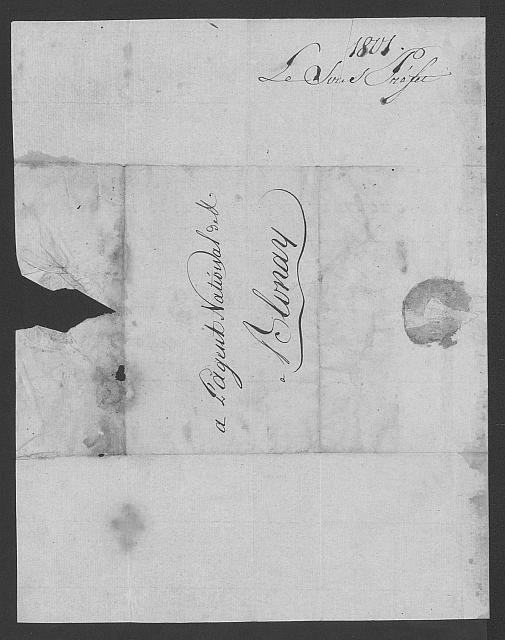 1801.
Le Sous Préfet
a L'agent National de &
a
Blonay